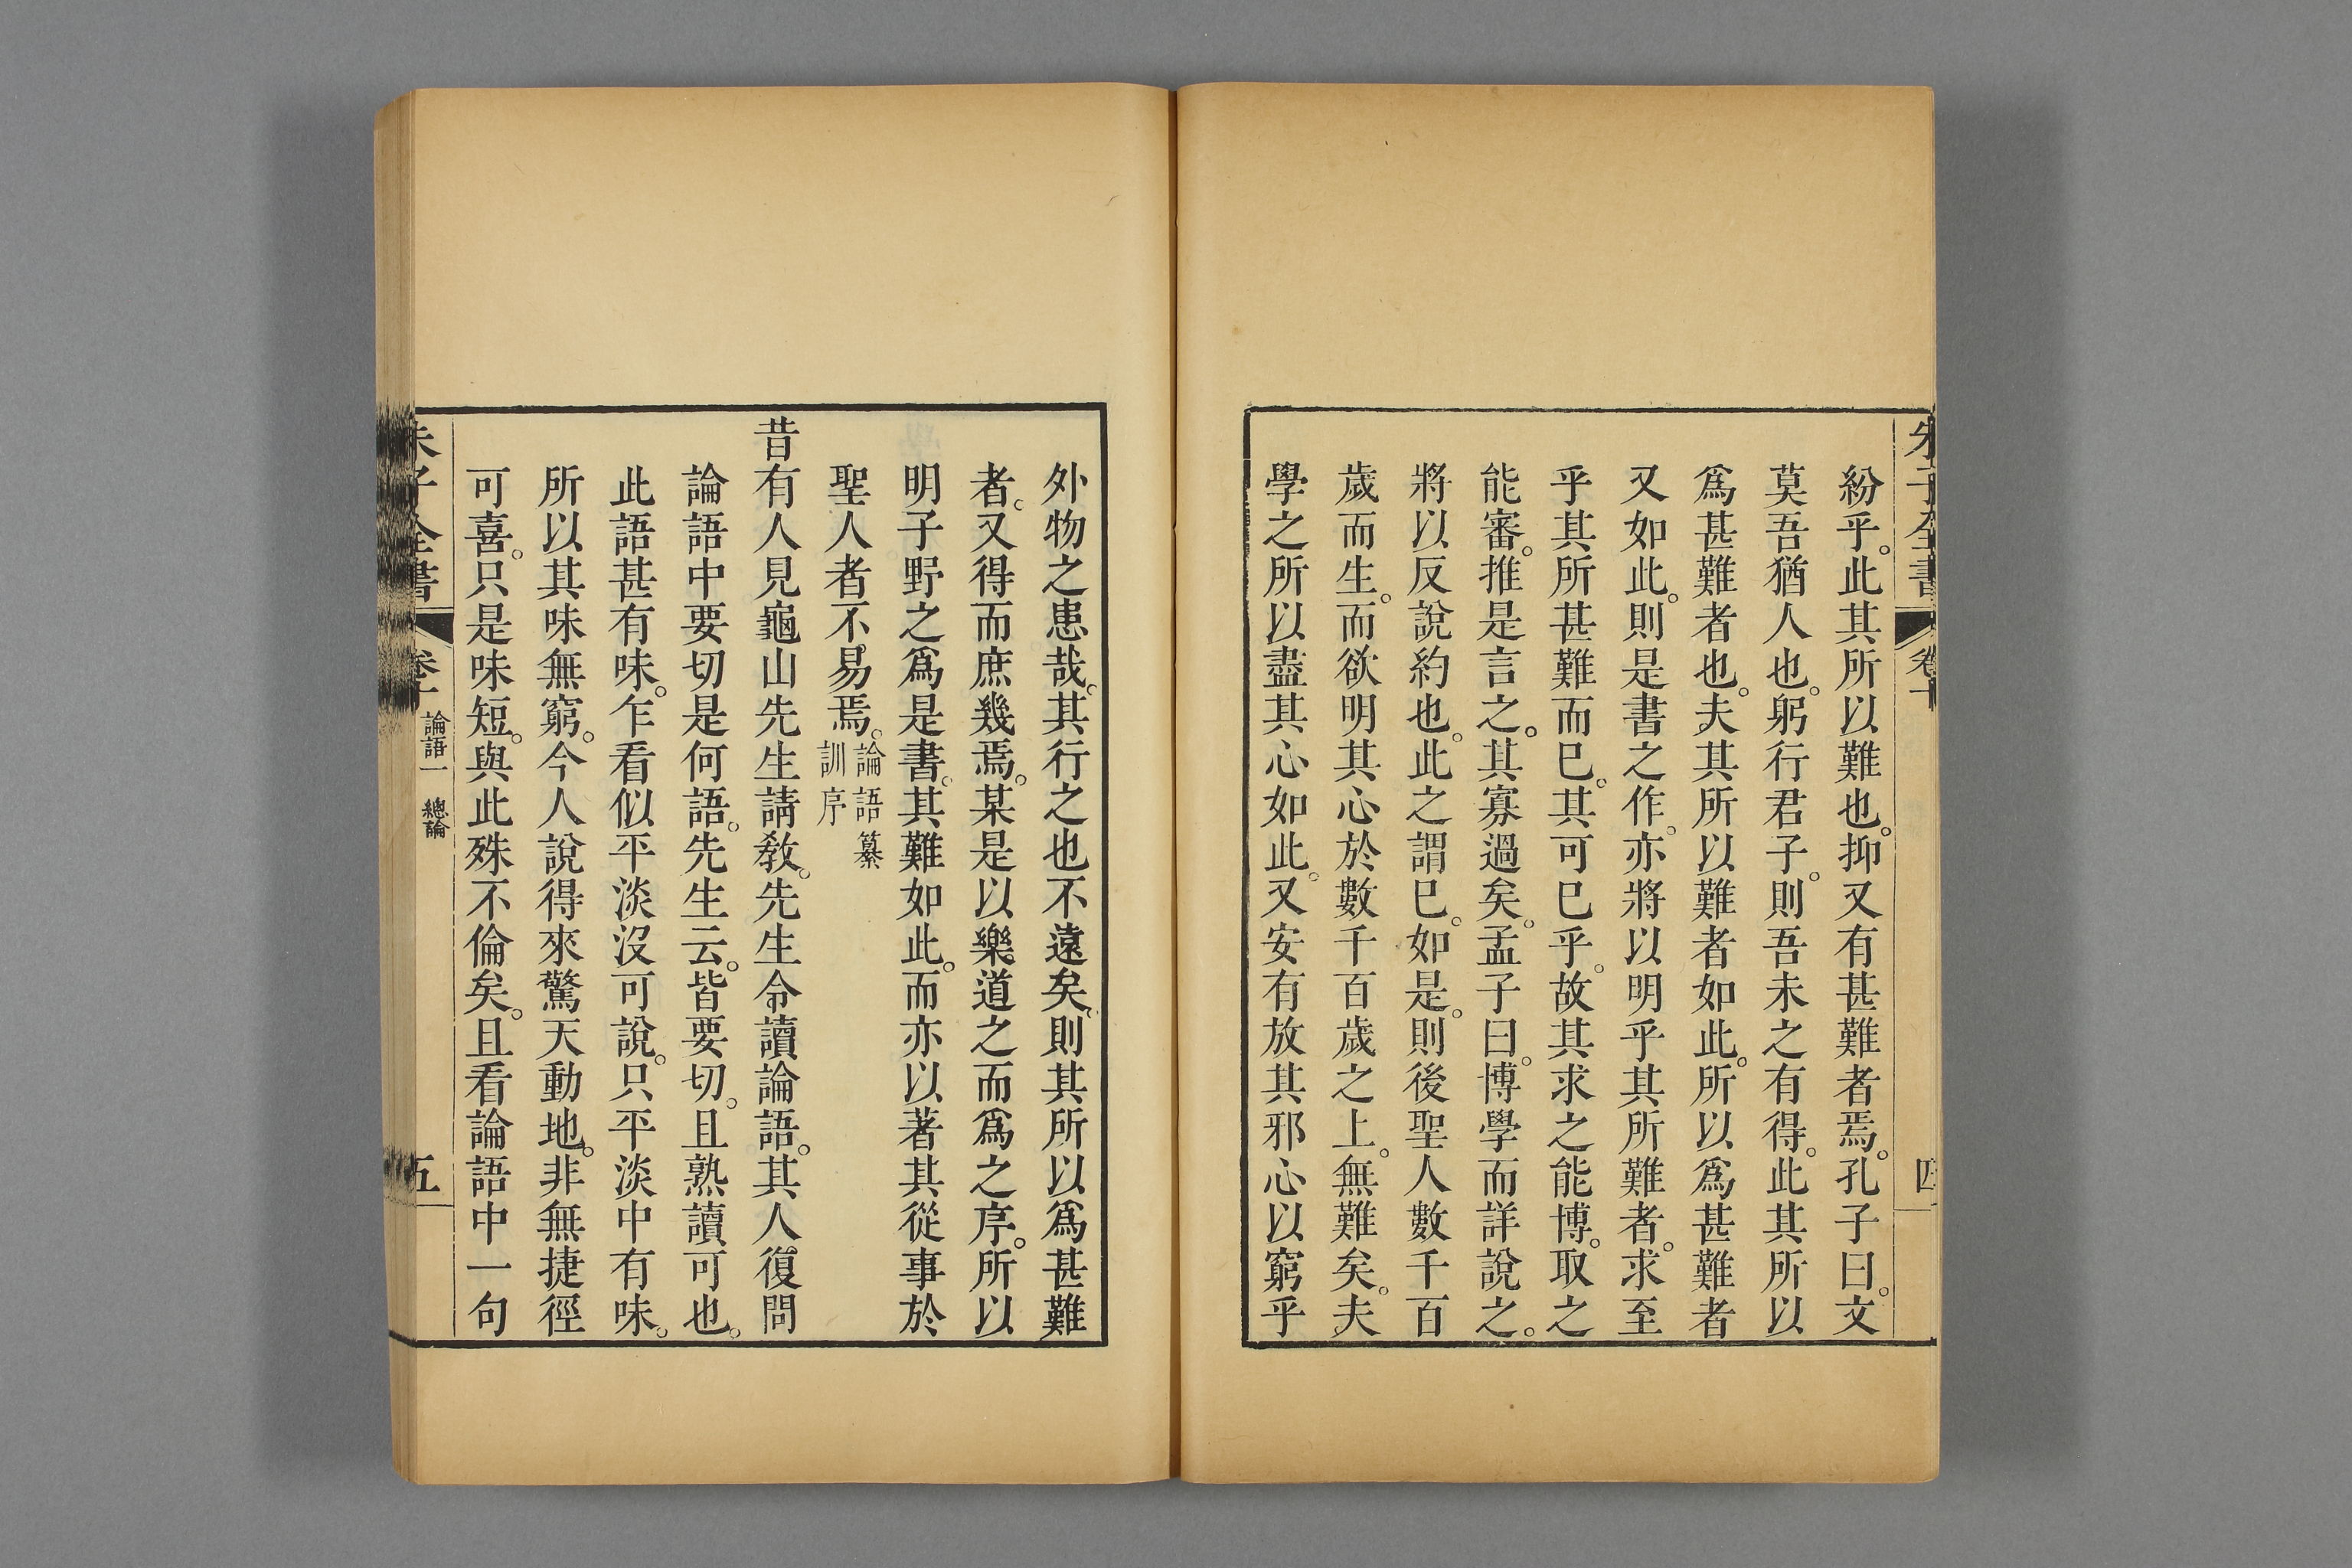 朱子全書 卷十 四
紛乎。此其所以難也。抑又有甚難者焉。孔子曰。文
莫吾猶人也。躬行君子。則吾未之有得。此其所以
爲甚難者也。夫其所以難者如此。所以爲甚難者
又如此。則是書之作。亦將以明乎其所難者。求至
乎其所甚難而巳。其可巳乎。故其求之能博。取之
能審。推是言之。其寡過矣。孟子曰。博學而詳說之。
將以反說約也。此之謂巳。如是。則後聖人數千百
歲而生。而欲明其心於數千百歲之上。無難矣。夫
學之所以盡其心如此。又安有放其邪心以窮乎
外物之患哉。其行之也不遠矣。則其所以爲甚難
者。又得而庶幾焉。某是以樂道之而爲之序。所以
明子野之爲是書。其難如此。而亦以著其從事於
聖人者不易焉。論語纂
訓序
昔有人見龜山先生請敎。先生令讀論語。其人復問
論語中要切是何語。先生云。皆要切。且熟讀可也。
此語甚有味。乍看似平淡沒可說。只平淡中有味。
所以其味無窮。今人說得來驚天動地。非無捷徑
可喜。只是味短。與此殊不倫矣。且看論語中一句
朱子全書 卷十 論語一 總論 五